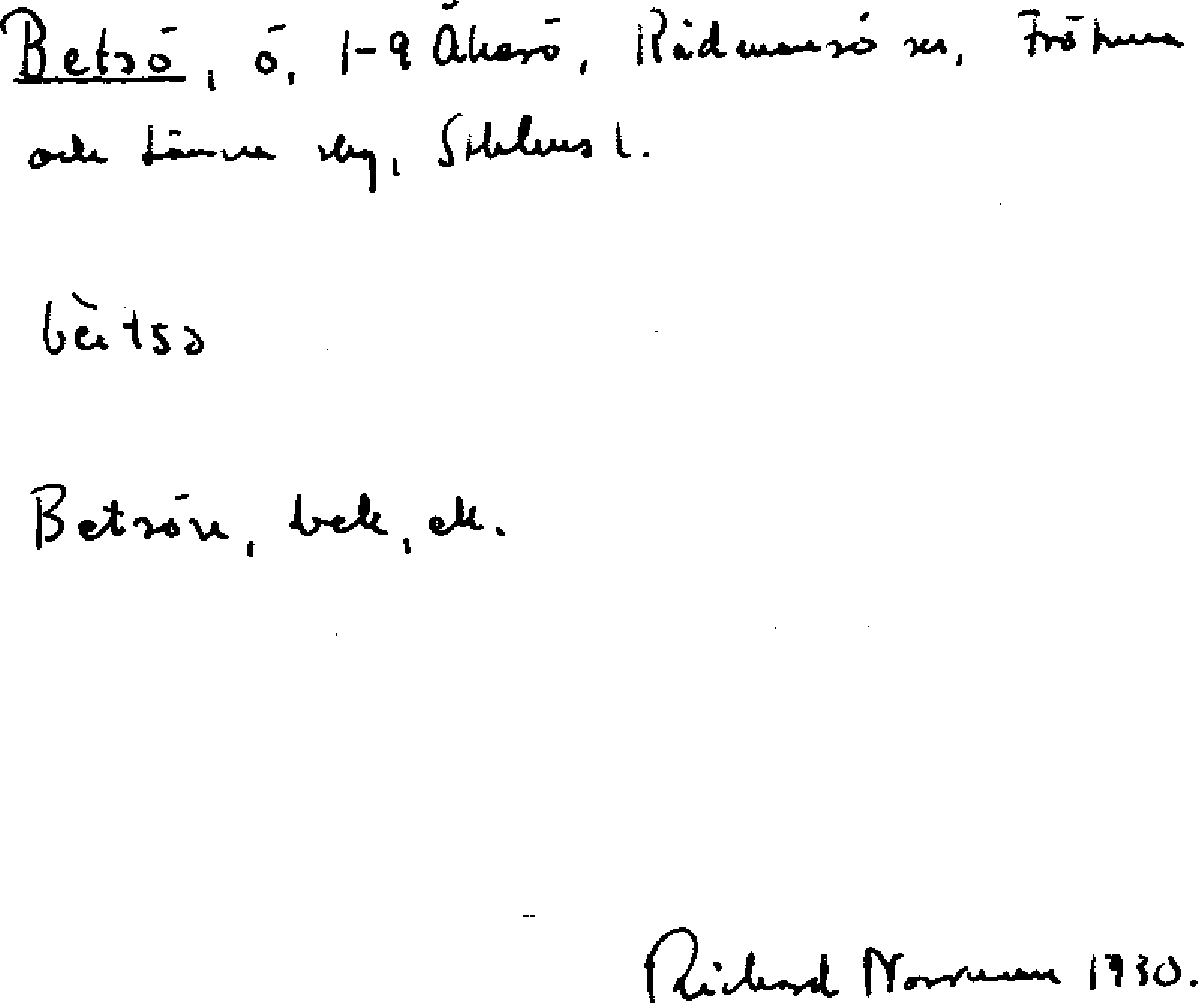 Betsö, ö, 1-9 Åkerö, Rådmansö sn, Frötuna
och Länna skg, Sthlms l.
bètsə
Betsön, bek, ek.
Richard Norrman 1930.